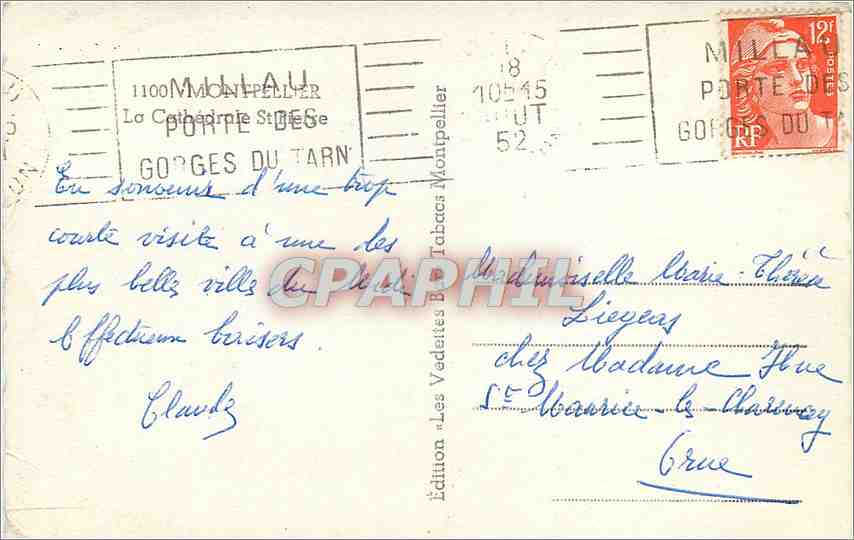 MILLAU
PORTE DES
GORGES DU TARN
1100 MONTPELLIER
La Cathédrale St Pierre
18
10H45
AOUT
52
MILLAU
PORTE DES
GORGES DU TA
12F
POSTES
RF
En souvenir d'une trop
courte visite à une des
plus belles villes du Midi
Affectueux baisers.
Claude
Édition «Les Vedettes Bar Tabacs Montpellier
CPAPHIL
Mademoiselle Marie-Thérèse
Liegeas
chez Madame Hue
St Maurice-les-Charencey
Orne